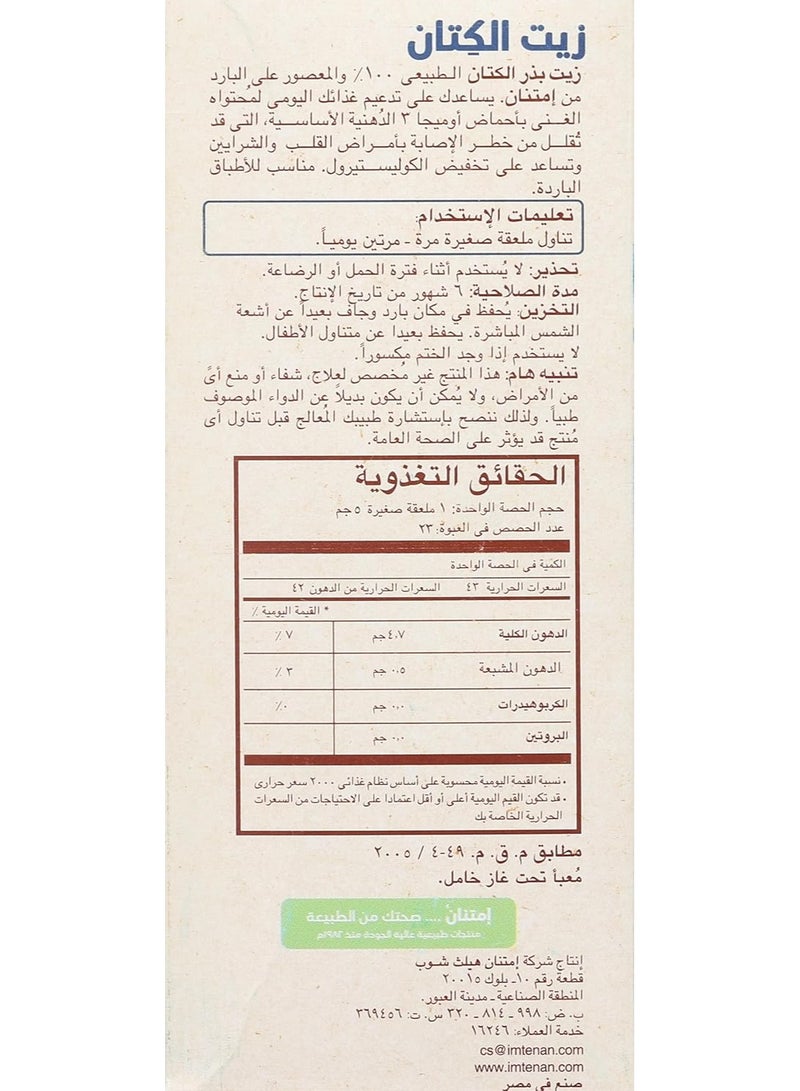 زيت الكِتان
زيت بذر الكتان الطبيعى ١٠٠٪ والمعصور على البارد
من إمتنان. يساعدك على تدعيم غذائك اليومى لمُحتواه
الغنى بأحماض أوميجا ٣ الدُهنية الأساسية، التى قد
تُقلل من خطر الإصابة بأمراض القلب والشرايين
وتساعد على تخفيض الكوليستيرول. مناسب للأطباق
الباردة.
تعليمات الإستخدام:
تناول ملعقة صغيرة مرة - مرتين يومياً.
تحذير: لا يُستخدم أثناء فترة الحمل أو الرضاعة.
مدة الصلاحية: ٦ شهور من تاريخ الإنتاج.
التخزين: يُحفظ في مكان بارد وجاف بعيداً عن أشعة
الشمس المباشرة. يحفظ بعيدا عن متناول الأطفال.
لا يستخدم إذا وجد الختم مكسوراً.
تنبيه هام: هذا المنتج غير مُخصص لعلاج، شفاء أو منع أىً
من الأمراض، ولا يُمكن أن يكون بديلاً عن الدواء الموصوف
طبياً. ولذلك ننصح بإستشارة طبيبك المُعالج قبل تناول أى
مُنتج قد يؤثر على الصحة العامة.
الحقائق التغذوية
حجم الحصة الواحدة: ١ ملعقة صغيرة ٥ جم
عدد الحصص فى العبوة: ٢٣
الكمية فى الحصة الواحدة
السعرات الحرارية ٤٣ السعرات الحرارية من الدهون ٤٢
* القيمة اليومية ٪
الدهون الكلية ٤،٧ جم ٧ ٪
الدهون المشبعة ٠،٥ جم ٣ ٪
الكربوهيدرات ٠،٠ جم ٠٪
البروتين ٠،٠ جم
• نسبة القيمة اليومية محسوبة على أساس نظام غذائى ٢٠٠٠ سعر حرارى
• قد تكون القيم اليومية أعلى أو أقل اعتمادا على الاحتياجات من السعرات
الحرارية الخاصة بك
مطابق م. ق. م. ٤٩-٤ / ٢٠٠٥
مُعبأ تحت غاز خامل.
إمتنان .... صحتك من الطبيعة
منتجات طبيعية عالية الجودة منذ ١٩٨٢م
إنتاج شركة إمتنان هيلث شوب
قطعة رقم ١٠- بلوك ٢٠٠١٥
المنطقة الصناعية - مدينة العبور.
ب. ض: ٩٩٨ - ٨١٤ - ٣٢٠ س. ت: ٣٦٩٤٥٦
خدمة العملاء: ١٦٢٤٦
cs@imtenan.com
www.imtenan.com
صنع في مصر